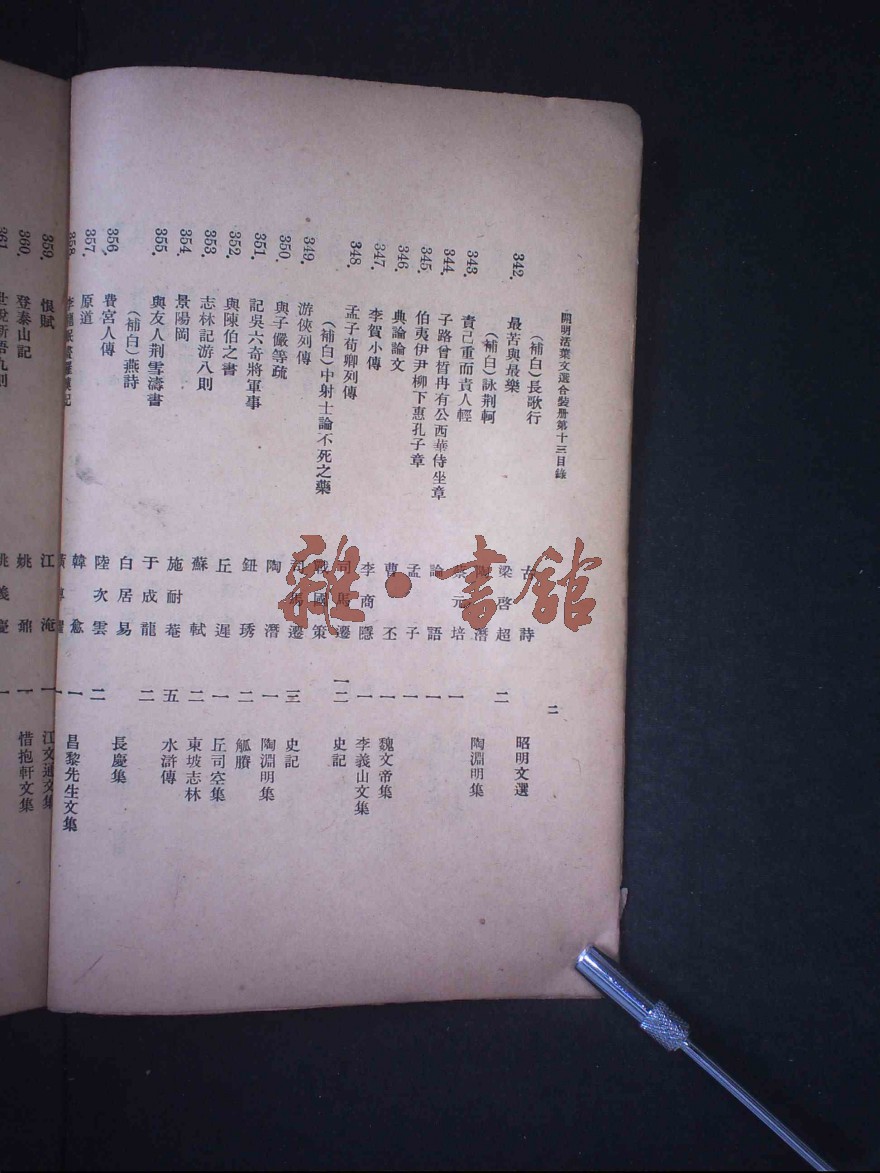 開明活葉文選合裝册第十三目錄 二
(補白)長歌行 古詩 昭明文選
342. 最苦與最樂 梁啓超 二
(補白)詠荆軻 陶潛 陶淵明集
343. 責己重而責人輕 蔡元培 一
344. 子路曾晳冉有公西華侍坐章 論語 一
345. 伯夷伊尹柳下惠孔子章 孟子 一
346. 典論論文 曹丕 一 魏文帝集
347. 李賀小傳 李商隱 一 李義山文集
348. 孟子荀卿列傳 司馬遷 一二 史記
(補白)中射士論不死之藥 戰國策
349. 游俠列傳 司馬遷 三 史記
350. 與子儼等疏 陶潛 一 陶淵明集
351. 記吳六奇將軍事 鈕琇 二 觚賸
352. 與陳伯之書 丘遲 一 丘司空集
353. 志林記游八則 蘇軾 二 東坡志林
354. 景陽岡 施耐菴 五 水滸傳
355. 與友人荆雪濤書 于成龍 二
(補白)燕詩 白居易 長慶集
356. 費宮人傳 陸次雲 二
357. 原道 韓愈 一 昌黎先生文集
358. 一
359. 恨賦 江淹 一 江文通文集
360. 登泰山記 姚鼐 一 惜抱軒文集
361. 世說新語九則 一